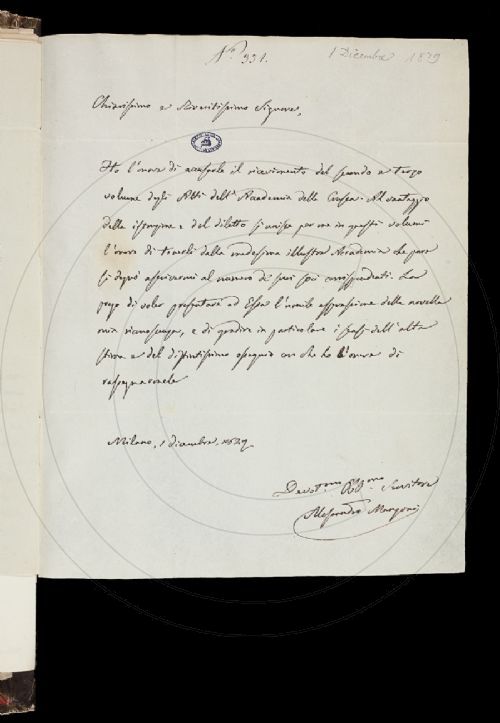 N.° 931.
1 Dicembre 1829
Chiarissimo e Prestantissimo Signore,
Ho l'onore di accusarle il ricevimento del secondo e terzo
volume degli Atti dell'Accademia della Crusca. Al vantaggio
della istruzione e del diletto si unisce per me in questi volumi
l'onore di tenerli dalla medesima illustre Accademia che pure
si degnò ascrivermi al numero de' suoi soci corrispondenti. La
prego di voler presentare ad Essa l'umile espressione della novella
mia riconoscenza, e di gradire in particolare i sensi dell'alta
stima e del distintissimo ossequio con che ho l'onore di
rassegnarmele
Milano, 1 dicembre, 1829.
Devot.mo Obb.mo Servitore
Alessandro Manzoni